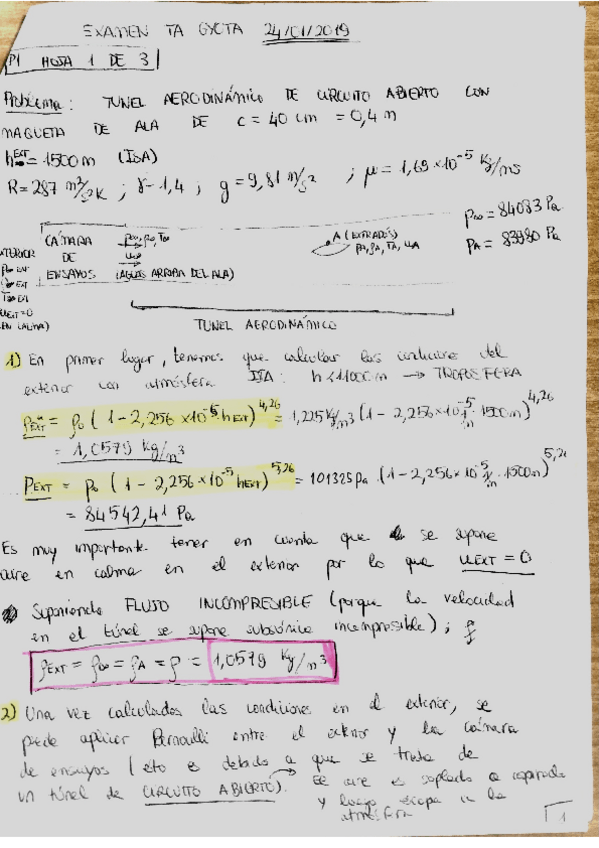 EXAMEN TA GYOTA 24/01/2019
P1 HOJA 1 DE 3
Problema: TUNEL AERODINÁMICO DE CIRCUITO ABIERTO CON
MAQUETA DE ALA DE c = 40 cm = 0,4 m
h∞^EXT = 1500 m (ISA)
R = 287 m²/s²K ; γ = 1,4 ; g = 9,81 m/s² ; μ = 1,69×10⁻⁵ Kg/ms
p∞ = 84083 Pa
PA = 83980 Pa
CÁMARA DE ENSAYOS
p∞, ρ∞, T∞
u∞
(AGUAS ARRIBA DEL ALA)
A (EXTRADÓS)
PA, ρA, TA, uA
EXTERIOR
P∞ EXT
ρ∞ EXT
T∞ EXT
uEXT = 0
(EN CALMA)
TUNEL AERODINÁMICO
1) En primer lugar, tenemos que calcular las condiciones del
exterior con atmósfera ISA: h < 11000 m → TROPOSFERA
ρEXT = ρ0 (1 - 2,256×10⁻⁵ · hEXT)^4,26 = 1,225 Kg/m³ (1 - 2,256×10⁻⁵ 1/m · 1500m)^4,26
= 1,0579 Kg/m³
PEXT = p0 (1 - 2,256×10⁻⁵ hEXT)^5,26 = 101325 Pa · (1 - 2,256×10⁻⁵ 1/m · 1500m)^5,26
= 84542,41 Pa
Es muy importante tener en cuenta que se supone
aire en calma en el exterior por lo que uEXT = 0
Suponiendo FLUJO INCOMPRESIBLE (porque la velocidad
en el túnel se supone subsónico incompresible);
ρEXT = ρ∞ = ρA = ρ = 1,0579 Kg/m³
2) Una vez calculadas las condiciones en el exterior, se
puede aplicar Bernoulli entre el exterior y la cámara
de ensayos (esto es debido a que se trata de
un túnel de CIRCUITO ABIERTO). → El aire es soplado o aspirado
y luego escapa a la
atmósfera
1